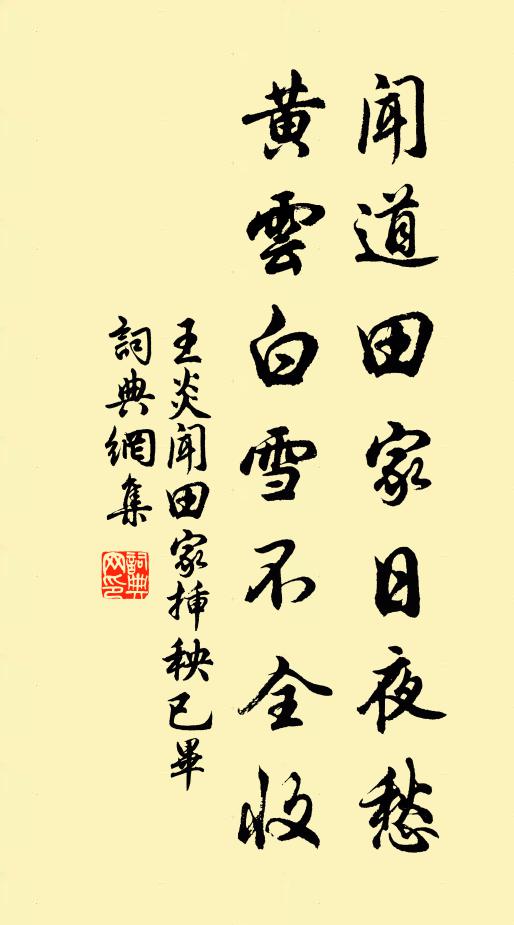 聞道田家日夜愁
黄雲白雪不全收
王炎聞田家插秧已畢
詞典網集
詞典網印